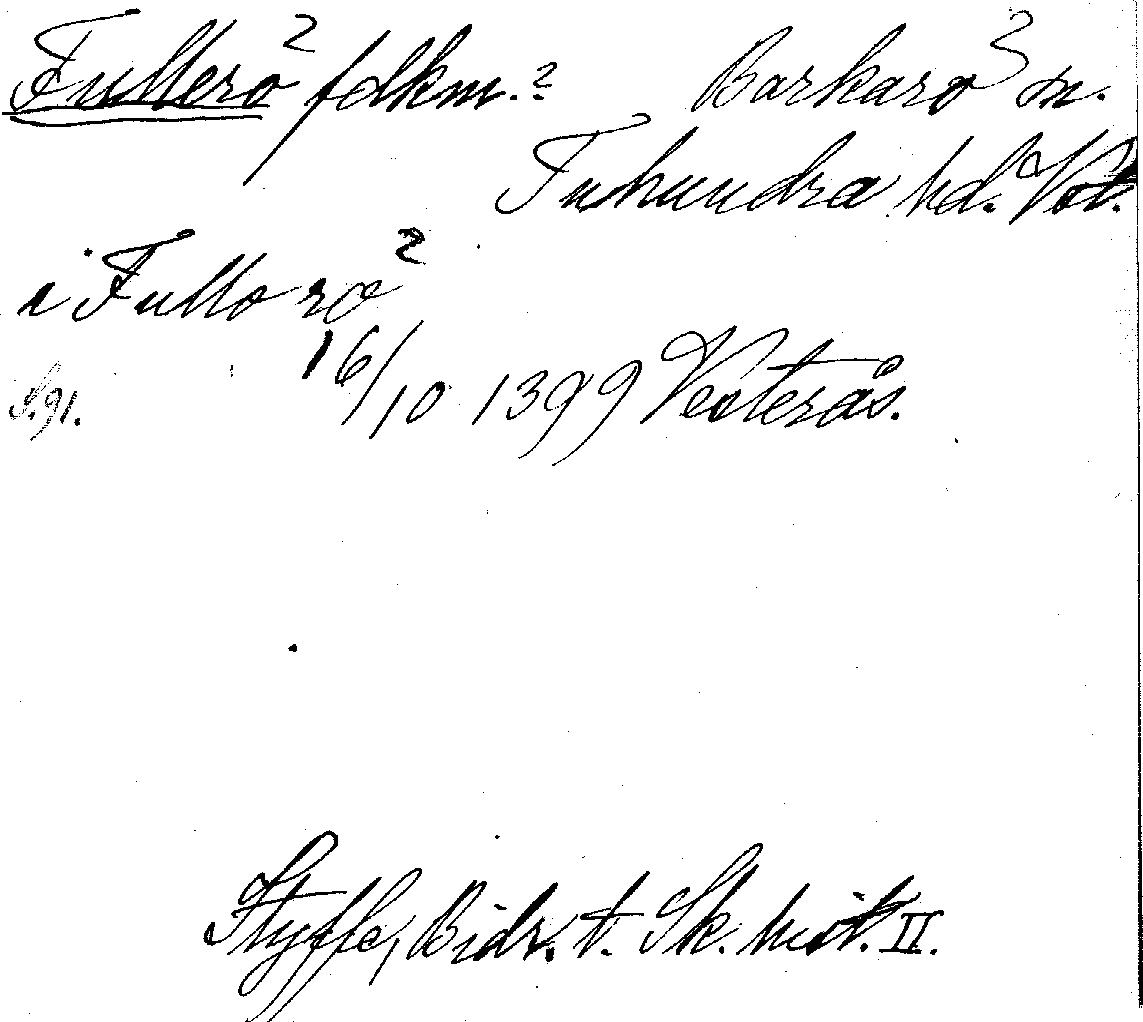 Fullerö fdkm.? Barkarö sn.
Tuhundra hd. Vstm.
i Fullo rö
16/10 1399 Vesterås.
S. 91.
Styffe, Bidr. t. Sk. hist. II.